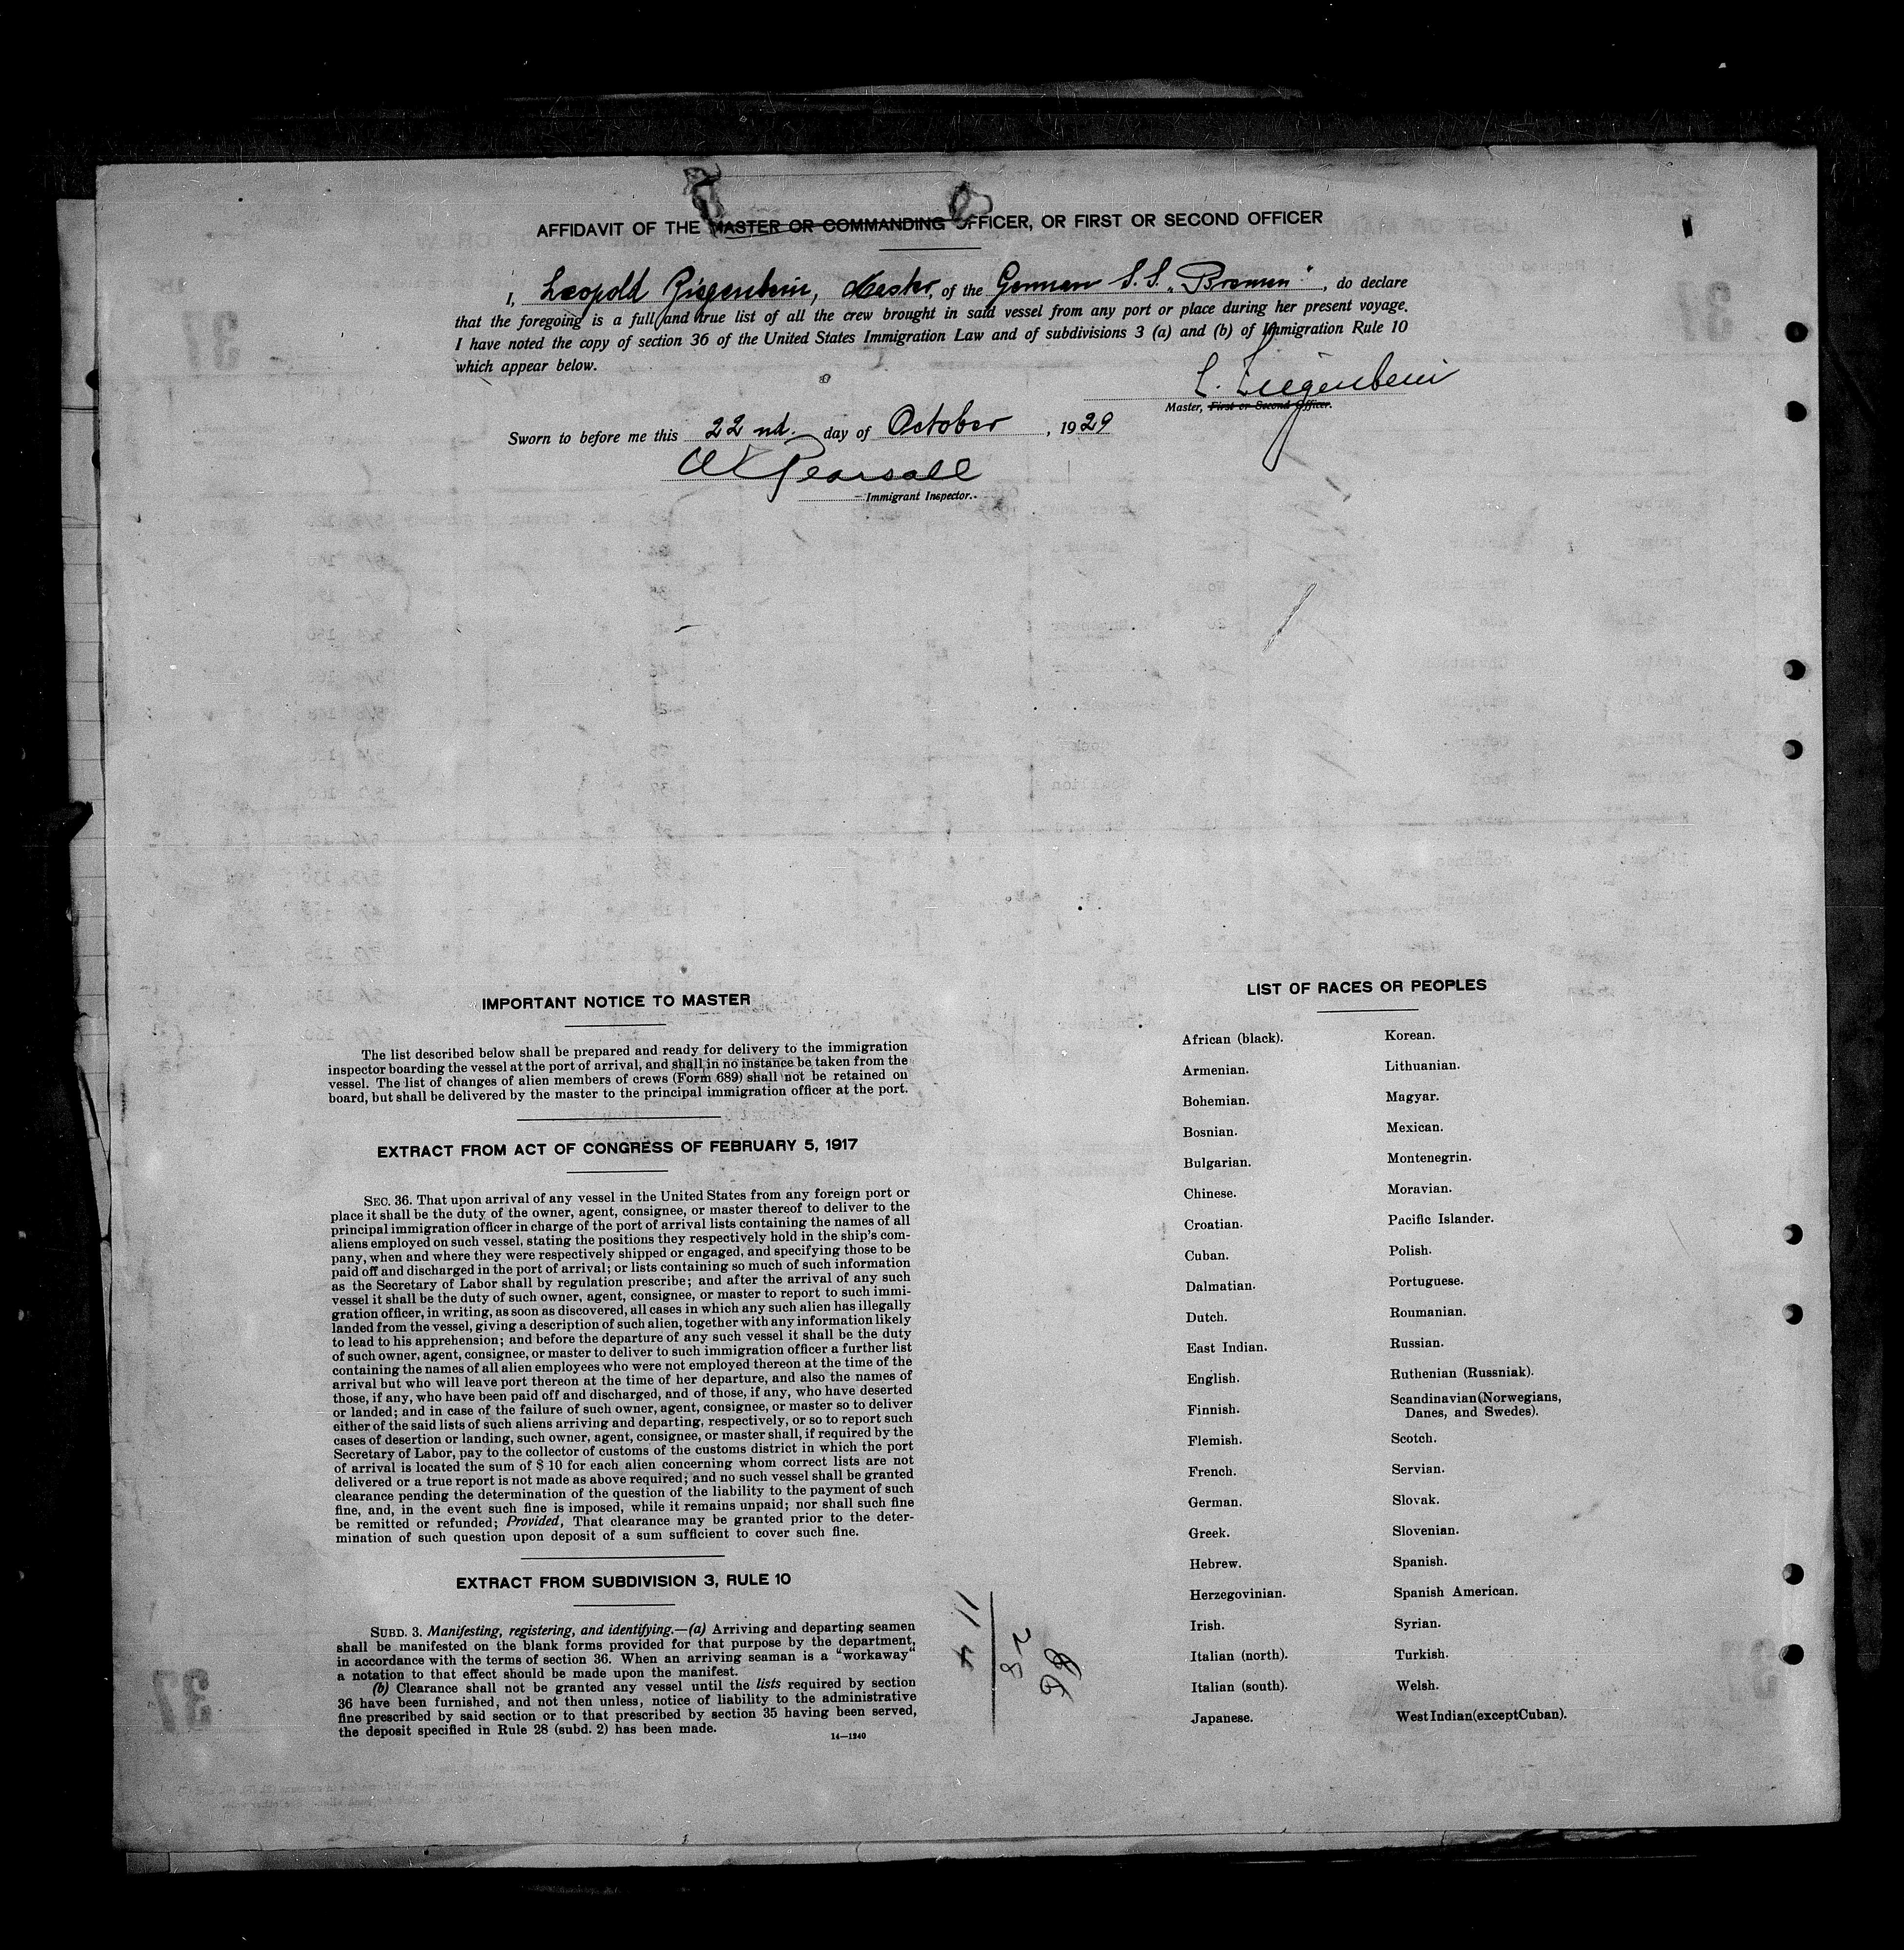 AFFIDAVIT OF THE MASTER OR COMMANDING OFFICER, OR FIRST OR SECOND OFFICER
I, Leopold Ziegenbein, Master, of the German S.S. "Bremen", do declare
that the foregoing is a full and true list of all the crew brought in said vessel from any port or place during her present voyage.
I have noted the copy of section 36 of the United States Immigration Law and of subdivisions 3 (a) and (b) of Immigration Rule 10
which appear below.
L. Ziegenbein
Master, First or Second Officer.
Sworn to before me this 22nd. day of October, 1929
Pearsall
Immigrant Inspector.
IMPORTANT NOTICE TO MASTER
The list described below shall be prepared and ready for delivery to the immigration
inspector boarding the vessel at the port of arrival, and shall in no instance be taken from the
vessel. The list of changes of alien members of crews (Form 689) shall not be retained on
board, but shall be delivered by the master to the principal immigration officer at the port.
EXTRACT FROM ACT OF CONGRESS OF FEBRUARY 5, 1917
SEC. 36. That upon arrival of any vessel in the United States from any foreign port or
place it shall be the duty of the owner, agent, consignee, or master thereof to deliver to the
principal immigration officer in charge of the port of arrival lists containing the names of all
aliens employed on such vessel, stating the positions they respectively hold in the ship's com-
pany, when and where they were respectively shipped or engaged, and specifying those to be
paid off and discharged in the port of arrival; or lists containing so much of such information
as the Secretary of Labor shall by regulation prescribe; and after the arrival of any such
vessel it shall be the duty of such owner, agent, consignee, or master to report to such immi-
gration officer, in writing, as soon as discovered, all cases in which any such alien has illegally
landed from the vessel, giving a description of such alien, together with any information likely
to lead to his apprehension; and before the departure of any such vessel it shall be the duty
of such owner, agent, consignee, or master to deliver to such immigration officer a further list
containing the names of all alien employees who were not employed thereon at the time of the
arrival but who will leave port thereon at the time of her departure, and also the names of
those, if any, who have been paid off and discharged, and of those, if any, who have deserted
or landed; and in case of the failure of such owner, agent, consignee, or master so to deliver
either of the said lists of such aliens arriving and departing, respectively, or so to report such
cases of desertion or landing, such owner, agent, consignee, or master shall, if required by the
Secretary of Labor, pay to the collector of customs of the customs district in which the port
of arrival is located the sum of $ 10 for each alien concerning whom correct lists are not
delivered or a true report is not made as above required; and no such vessel shall be granted
clearance pending the determination of the question of the liability to the payment of such
fine, and, in the event such fine is imposed, while it remains unpaid; nor shall such fine
be remitted or refunded; Provided, That clearance may be granted prior to the deter-
mination of such question upon deposit of a sum sufficient to cover such fine.
EXTRACT FROM SUBDIVISION 3, RULE 10
SUBD. 3. Manifesting, registering, and identifying.—(a) Arriving and departing seamen
shall be manifested on the blank forms provided for that purpose by the department,
in accordance with the terms of section 36. When an arriving seaman is a "workaway"
a notation to that effect should be made upon the manifest.
(b) Clearance shall not be granted any vessel until the lists required by section
36 have been furnished, and not then unless, notice of liability to the administrative
fine prescribed by said section or to that prescribed by section 35 having been served,
the deposit specified in Rule 28 (subd. 2) has been made.
14—1240
28
114
LIST OF RACES OR PEOPLES
African (black).
Armenian.
Bohemian.
Bosnian.
Bulgarian.
Chinese.
Croatian.
Cuban.
Dalmatian.
Dutch.
East Indian.
English.
Finnish.
Flemish.
French.
German.
Greek.
Hebrew.
Herzegovinian.
Irish.
Italian (north).
Italian (south).
Japanese.
Korean.
Lithuanian.
Magyar.
Mexican.
Montenegrin.
Moravian.
Pacific Islander.
Polish.
Portuguese.
Roumanian.
Russian.
Ruthenian (Russniak).
Scandinavian (Norwegians,
Danes, and Swedes).
Scotch.
Servian.
Slovak.
Slovenian.
Spanish.
Spanish American.
Syrian.
Turkish.
Welsh.
West Indian (except Cuban).